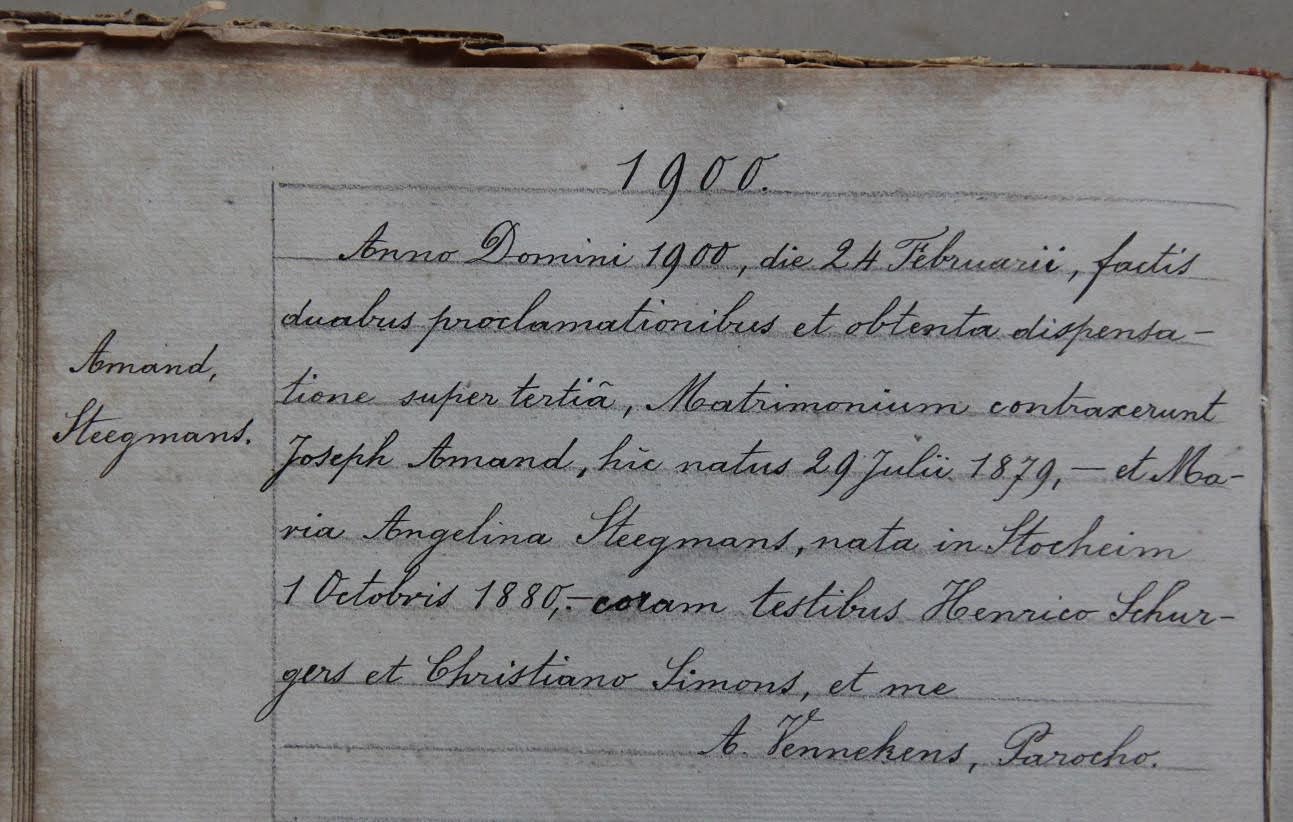 1900.
Anno Domini 1900, die 24 Februarii, factis
duabus proclamationibus et obtenta dispensa-
Amand,
tione super tertiâ, Matrimonium contraxerunt
Steegmans.
Joseph Amand, hîc natus 29 Julii 1879, — et Ma-
ria Angelina Steegmans, nata in Stocheim
1 Octobris 1880, — coram testibus Henrico Schur-
gers et Christiano Simons, et me
A. Vennekens, Parocho.